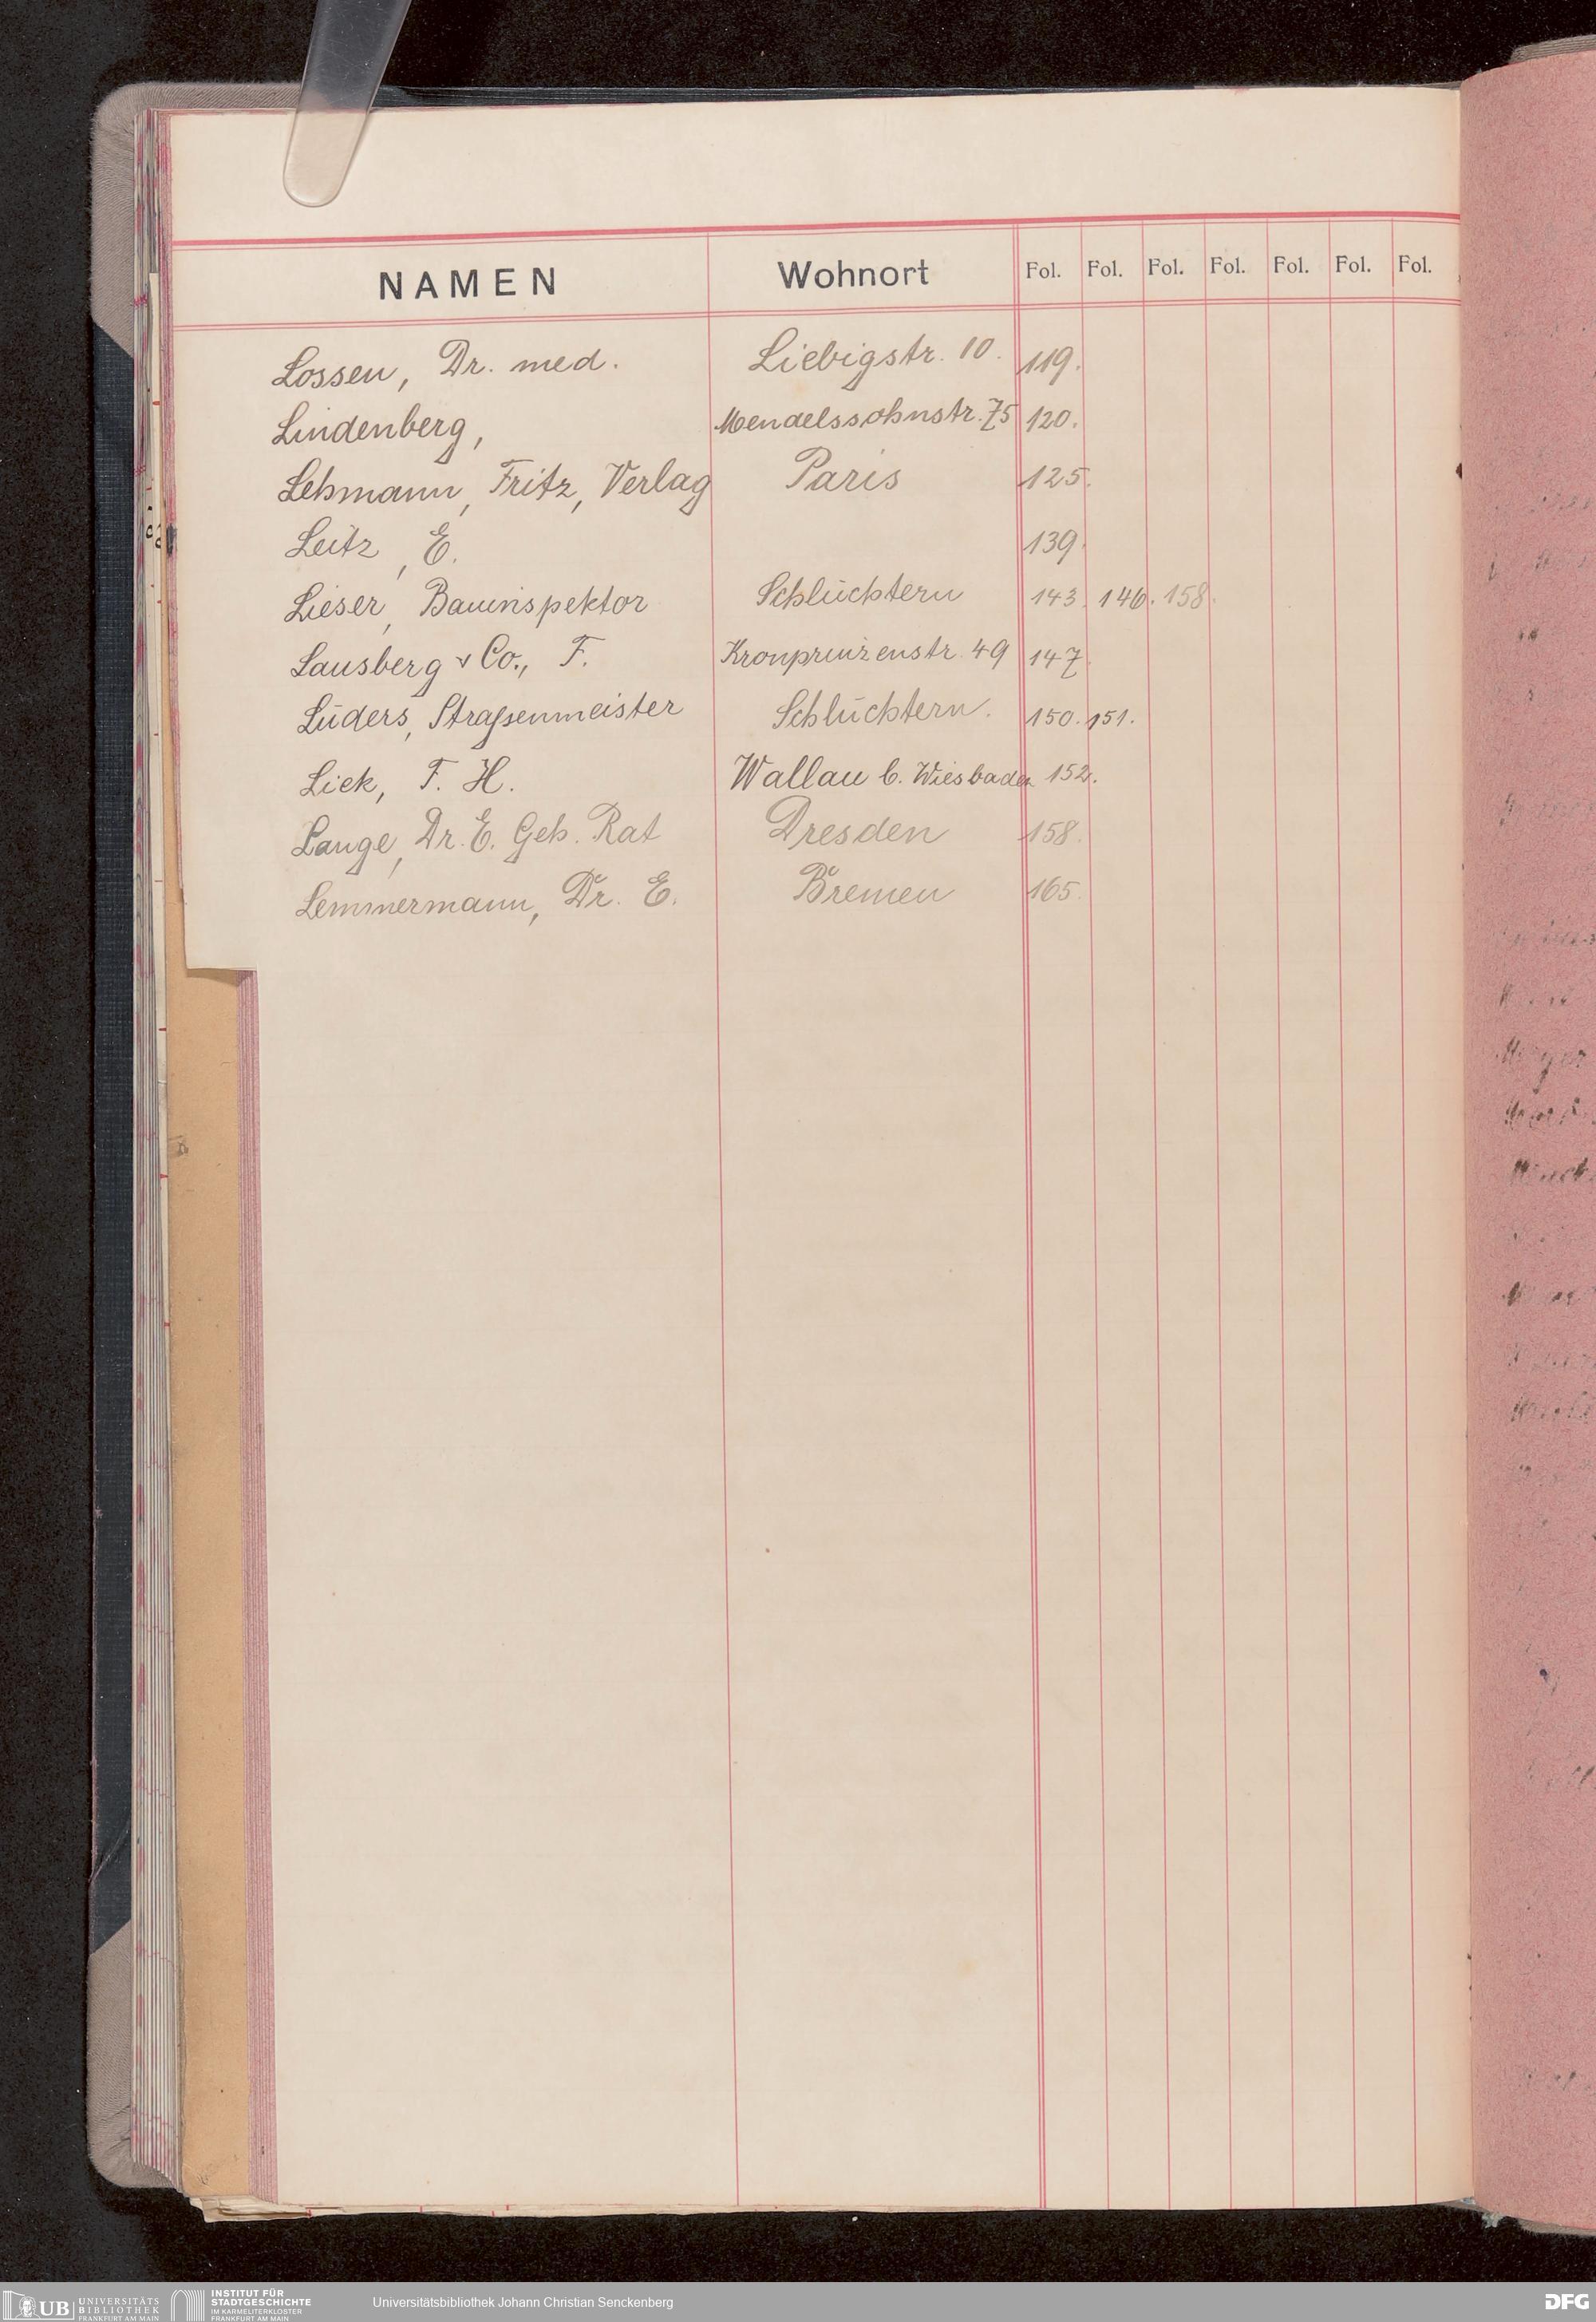 NAMEN Wohnort Fol. Fol. Fol. Fol. Fol. Fol. Fol.
Lossen, Dr. med. Liebigstr. 10. 119.
Lindenberg, Mendelssohnstr. 75 120.
Lehmann, Fritz, Verlag Paris 125.
Leitz, E. 139.
Lieser, Bauinspektor Schlüchtern 143. 146. 158.
Lausberg & Co., F. Kronprinzenstr. 49 147.
Lüders, Straßenmeister Schlüchtern. 150. 151.
Liek, F. H. Wallau b. Wiesbaden 152.
Lange, Dr. E. Geh. Rat Dresden 158.
Lemmermann, Dr. E. Bremen 165.
UB UNIVERSITÄTS
BIBLIOTHEK
FRANKFURT AM MAIN
INSTITUT FÜR
STADTGESCHICHTE
IM KARMELITERKLOSTER
FRANKFURT AM MAIN
Universitätsbibliothek Johann Christian Senckenberg
DFG